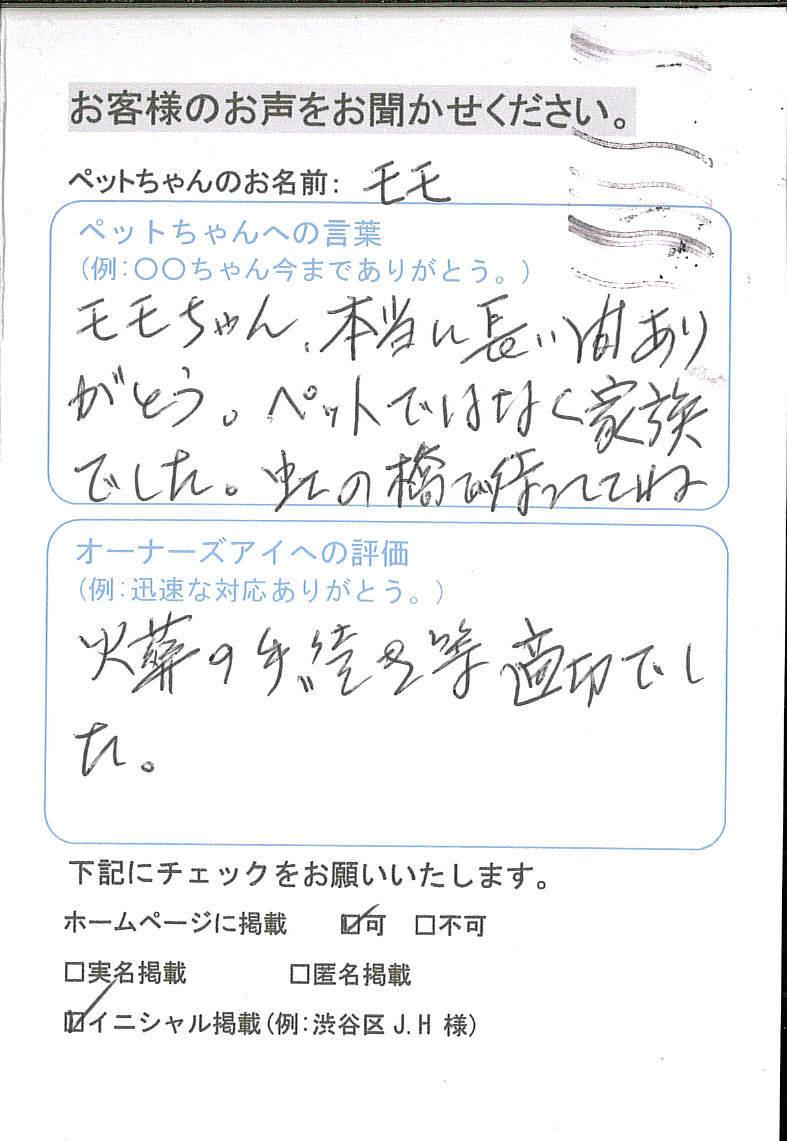 お客様のお声をお聞かせください。
ペットちゃんのお名前: モモ
ペットちゃんへの言葉
(例:〇〇ちゃん今までありがとう。)
モモちゃん、本当に長い間あり
がとう。ペットではなく家族
でした。虹の橋で待っててね
オーナーズアイへの評価
(例:迅速な対応ありがとう。)
火葬の手続き等適切でし
た。
下記にチェックをお願いいたします。
ホームページに掲載 ☑可 □不可
□実名掲載 □匿名掲載
☑イニシャル掲載(例:渋谷区 J.H 様)